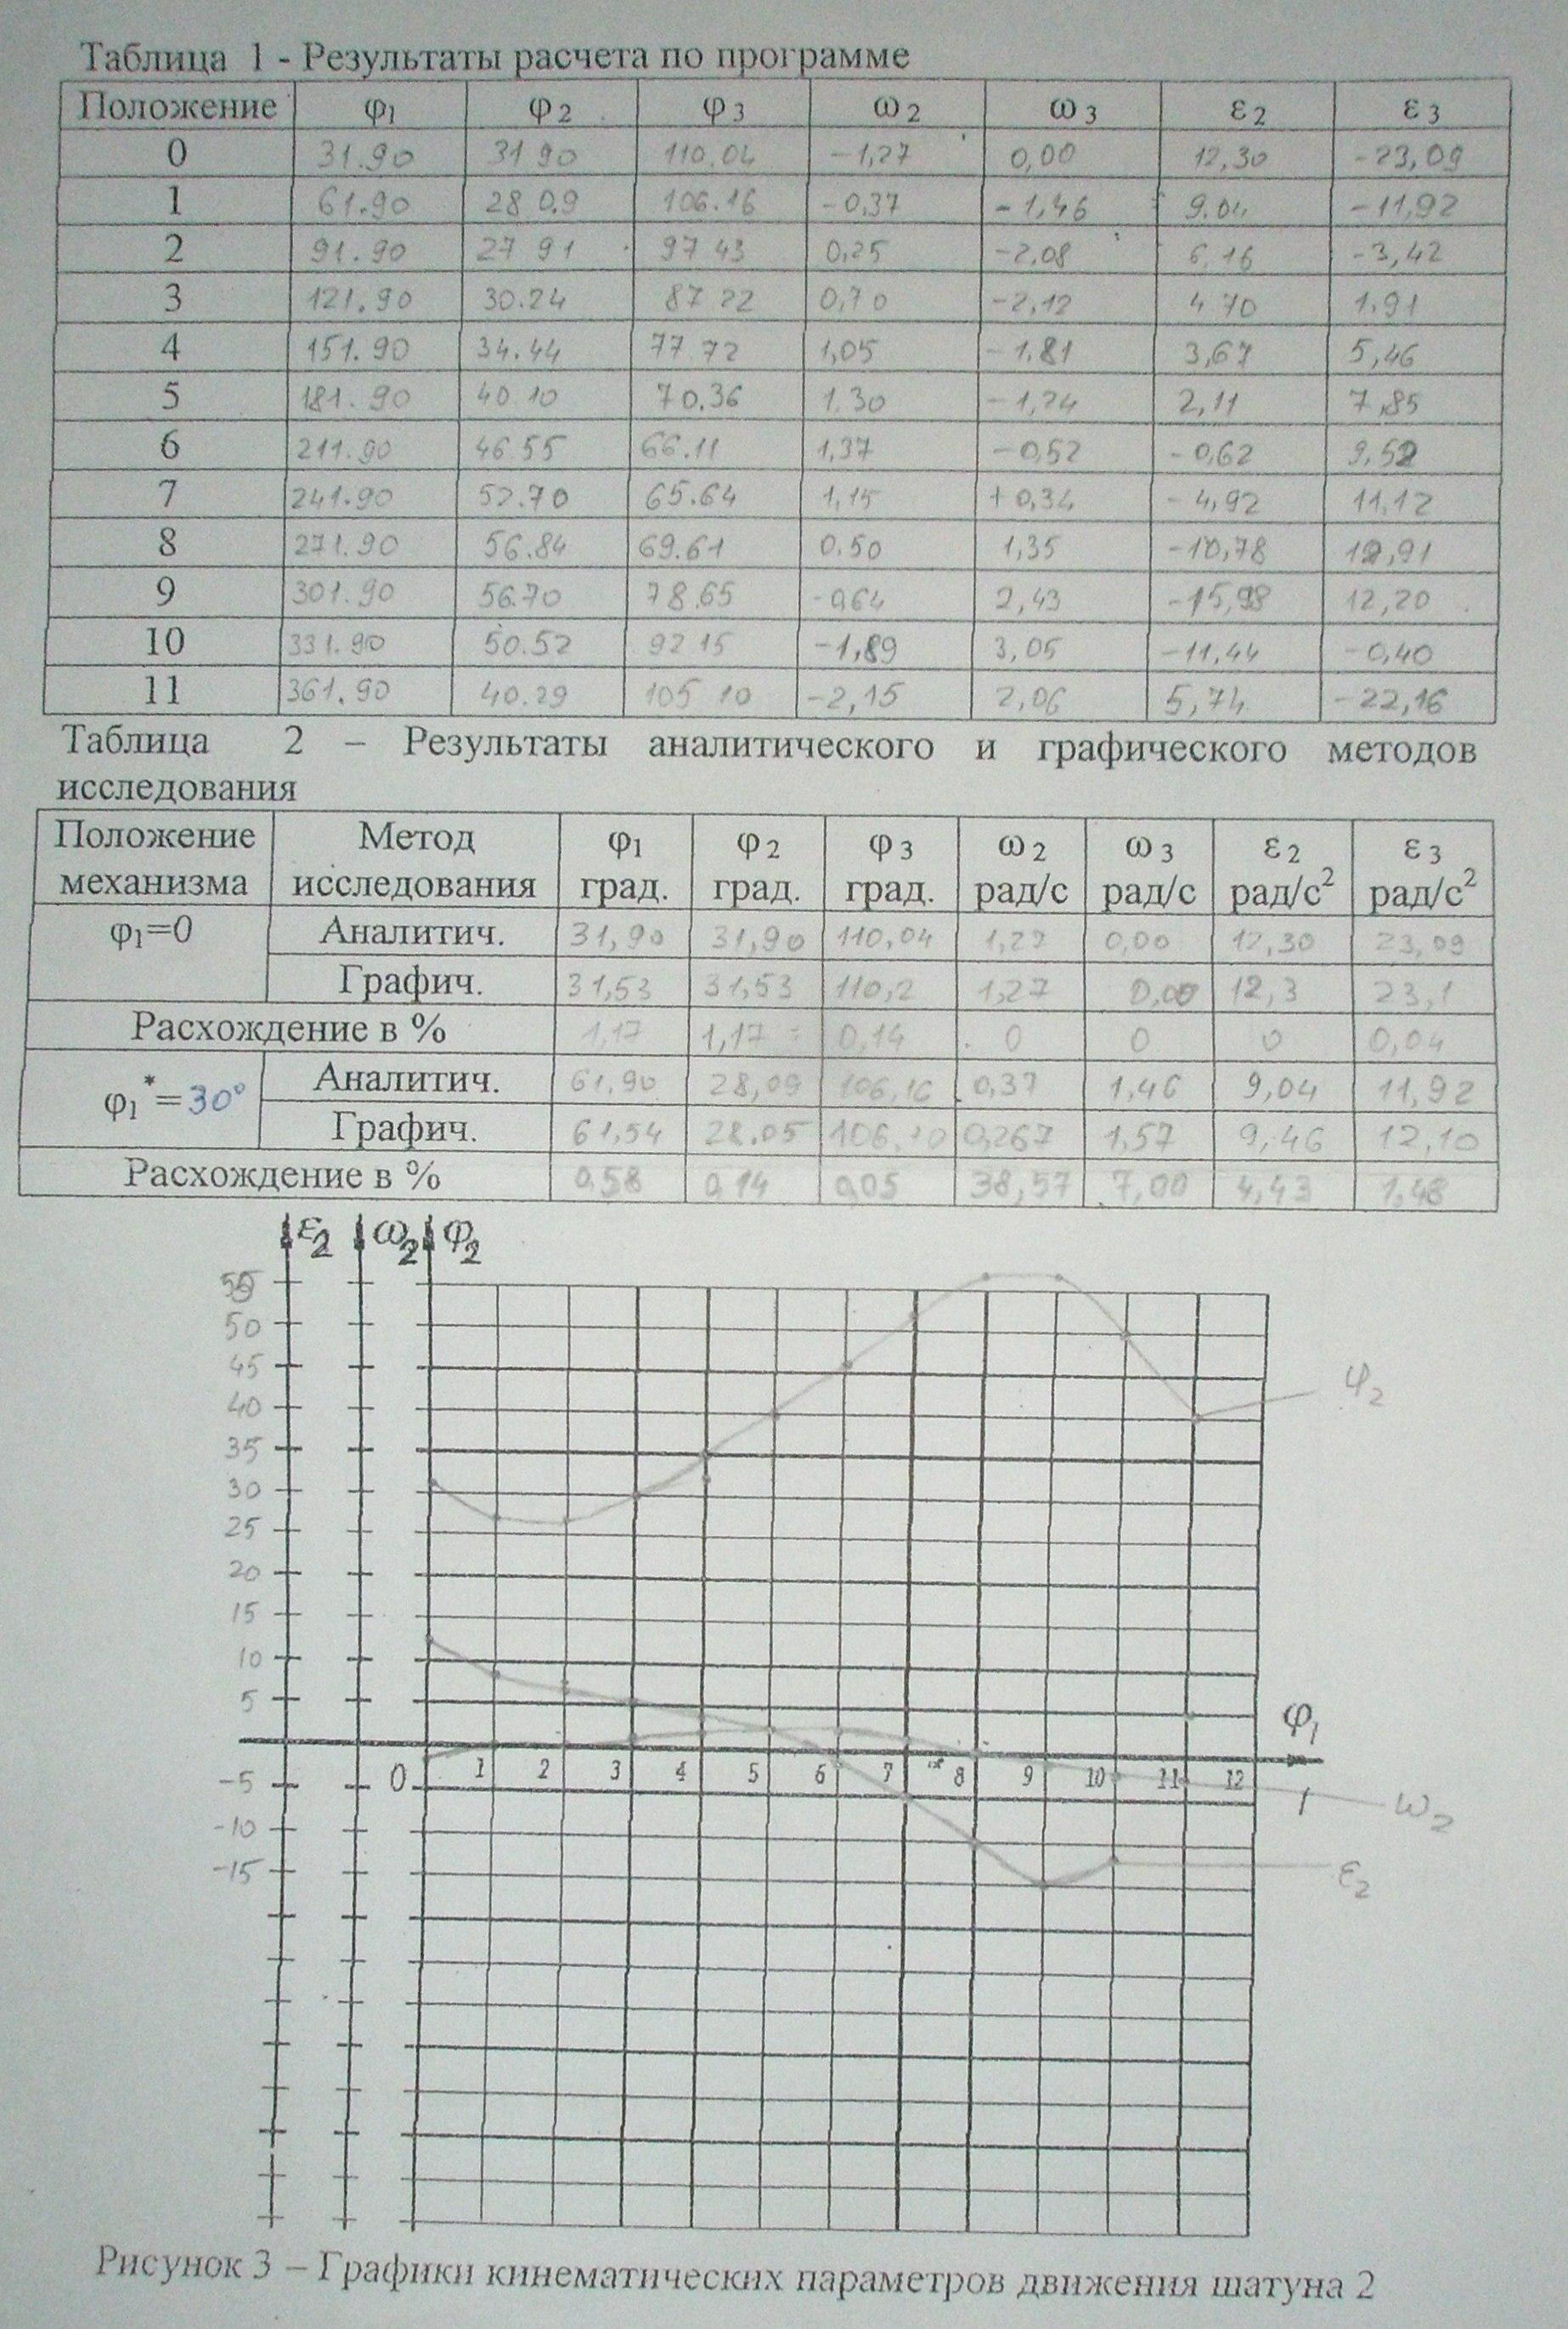 Таблица 1 - Результаты расчета по программе
Положение φ1 φ2 φ3 ω2 ω3 ε2 ε3
0 31.90 31 90 110.04 -1,27 0,00 12,30 -23,09
1 61.90 28 0.9 106.16 -0,37 -1,46 9.04 -11,92
2 91.90 27 91 97 43 0,25 -2,08 6.16 -3,42
3 121.90 30.24 87 22 0,70 -2,12 4 70 1,91
4 151.90 34.44 77 72 1,05 -1,81 3,67 5,46
5 181.90 40 10 70.36 1,30 -1,24 2,11 7,85
6 211.90 46 55 66.11 1,37 -0,52 -0,62 9,52
7 241.90 52.70 65.64 1,15 +0,34 -4,92 11,12
8 271.90 56.84 69.61 0.50 1,35 -10,78 12,91
9 301.90 56.70 78.65 -0,64 2,43 -15,98 12,20
10 331.90 50.52 92 15 -1,89 3,05 -11,44 -0,40
11 361.90 40.29 105 10 -2,15 2,06 5,74 -22,16
Таблица 2 – Результаты аналитического и графического методов
исследования
Положение механизма Метод исследования φ1 град. φ2 град. φ3 град. ω2 рад/с ω3 рад/с ε2 рад/с² ε3 рад/с²
φ1=0 Аналитич. 31,90 31,90 110,04 1,27 0,00 12,30 23,09
Графич. 31,53 31,53 110,2 1,27 0,00 12,3 23,1
Расхождение в % 1,17 1,17 0,14 0 0 0 0,04
φ1*=30° Аналитич. 61,90 28,09 106,16 0,37 1,46 9,04 11,92
Графич. 61,54 28.05 106,10 0,267 1,57 9,46 12,10
Расхождение в % 0,58 0,14 0,05 38,57 7,00 4,43 1,48
ε2 ω2 φ2
55
50
45
40
35
30
25
20
15
10
5
-5
-10
-15
φ2
φ1
0 1 2 3 4 5 6 7 8 9 10 11 12
ω2
ε2
Рисунок 3 – Графики кинематических параметров движения шатуна 2